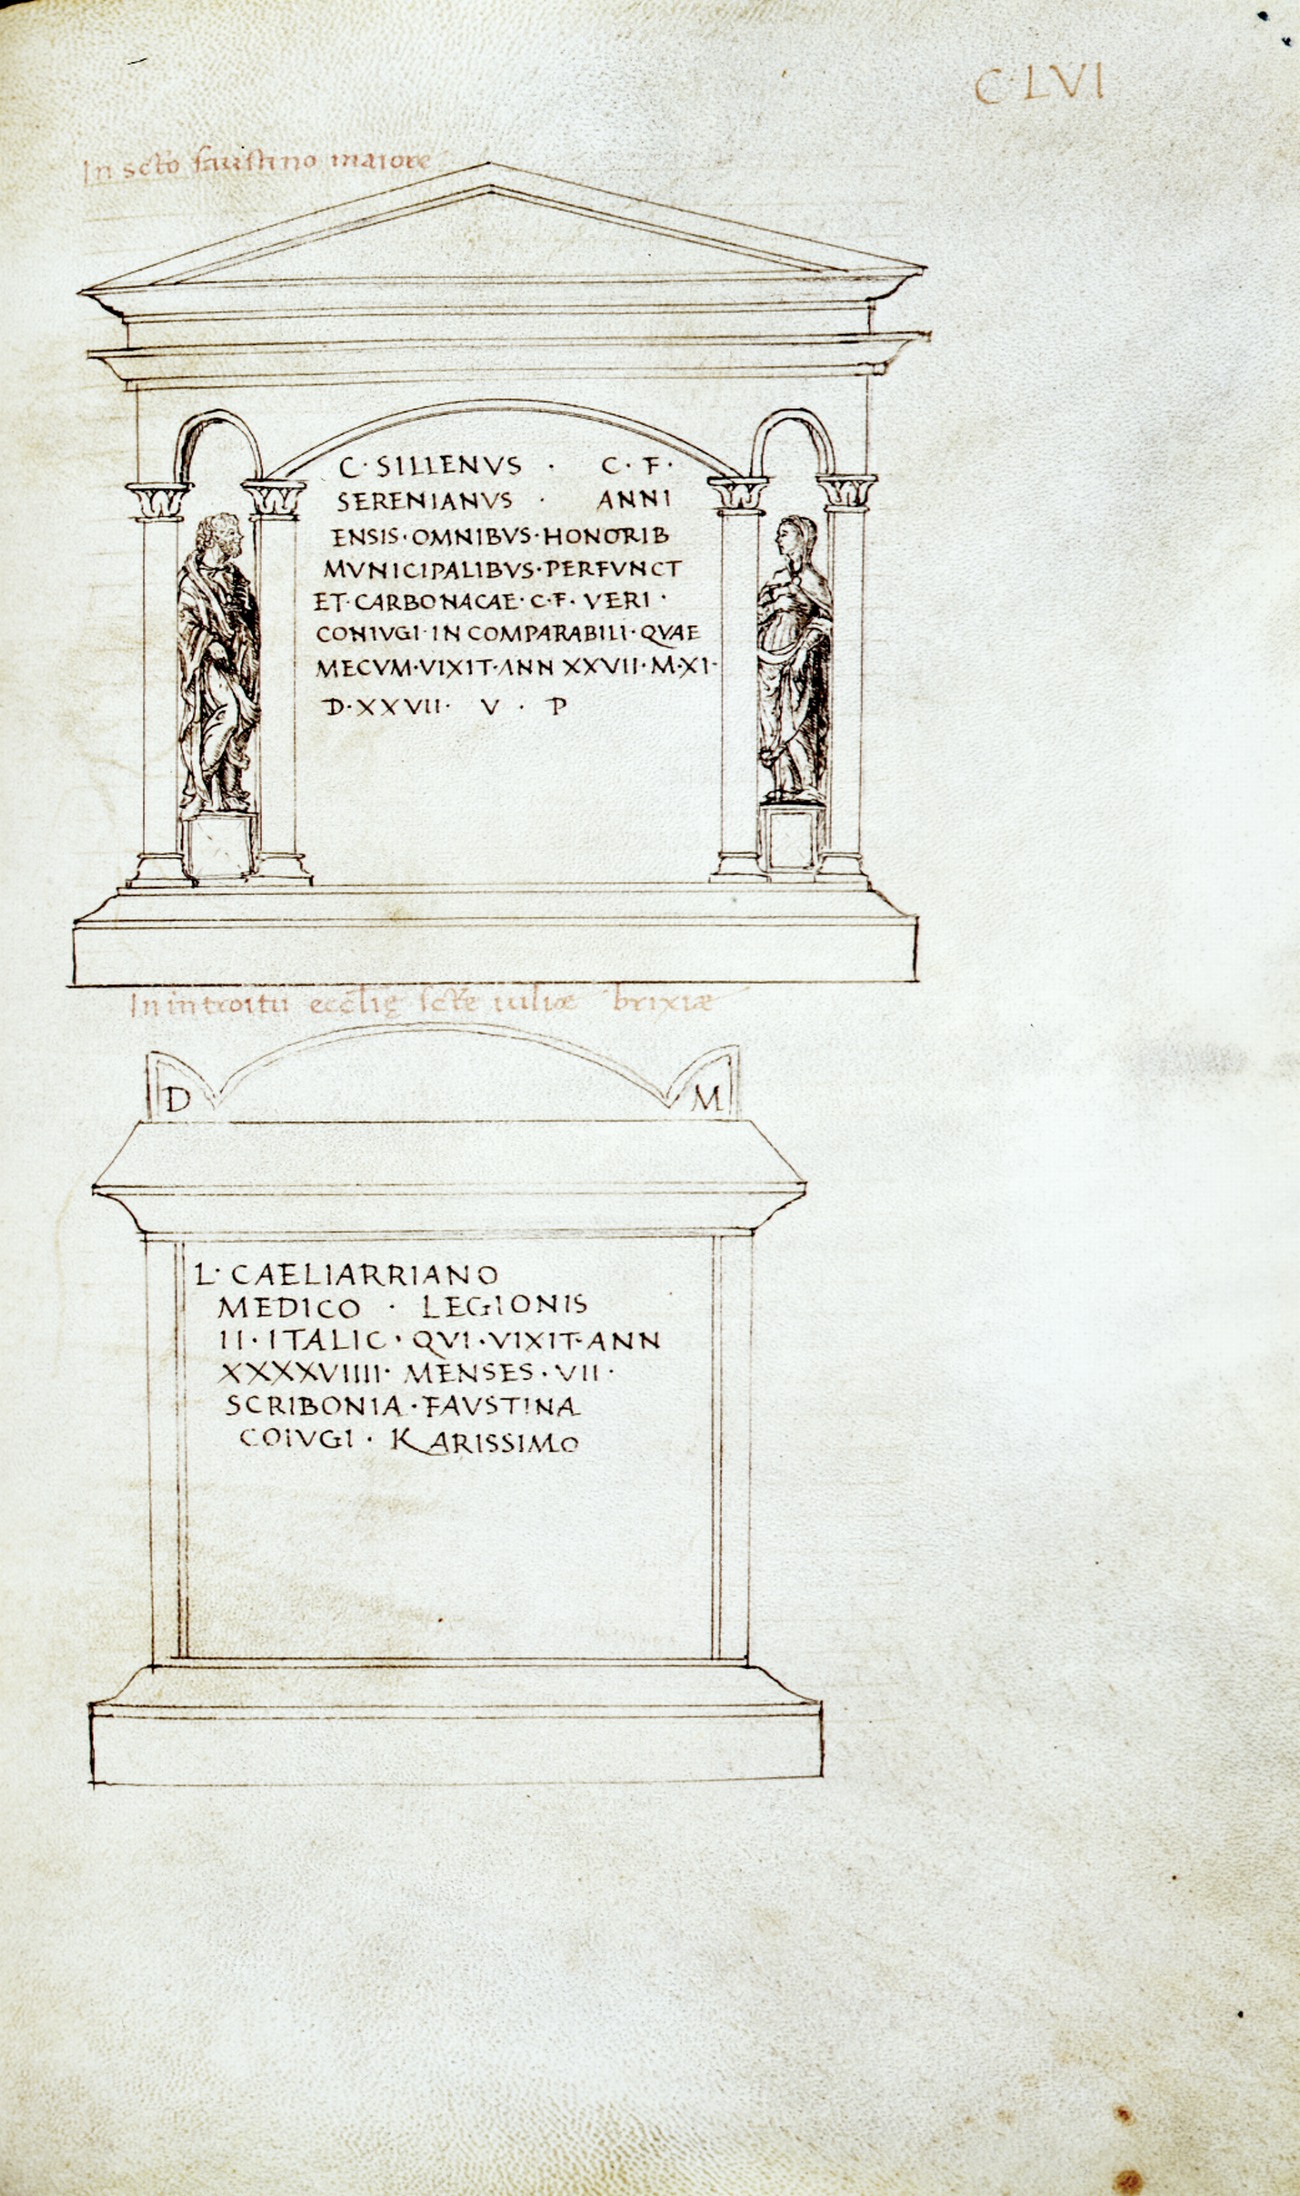 C·LVI
In scto faustino maiore
C·SILLENVS · C·F·
SERENIANVS · ANNI
ENSIS·OMNIBVS·HONORIB
MVNICIPALIBVS·PERFVNCT
ET·CARBONACAE·C·F·VERI·
CONIVGI·IN COMPARABILI·QVAE
MECVM·VIXIT·ANN XXVII·M·XI·
D·XXVII· V · P
In introitu ecclie scte iuliae brixiae
D M
L·CAELIARRIANO
MEDICO · LEGIONIS
II·ITALIC·QVI·VIXIT·ANN
XXXXVIIII·MENSES·VII·
SCRIBONIA·FAVSTINA
COIVGI·KARISSIMO